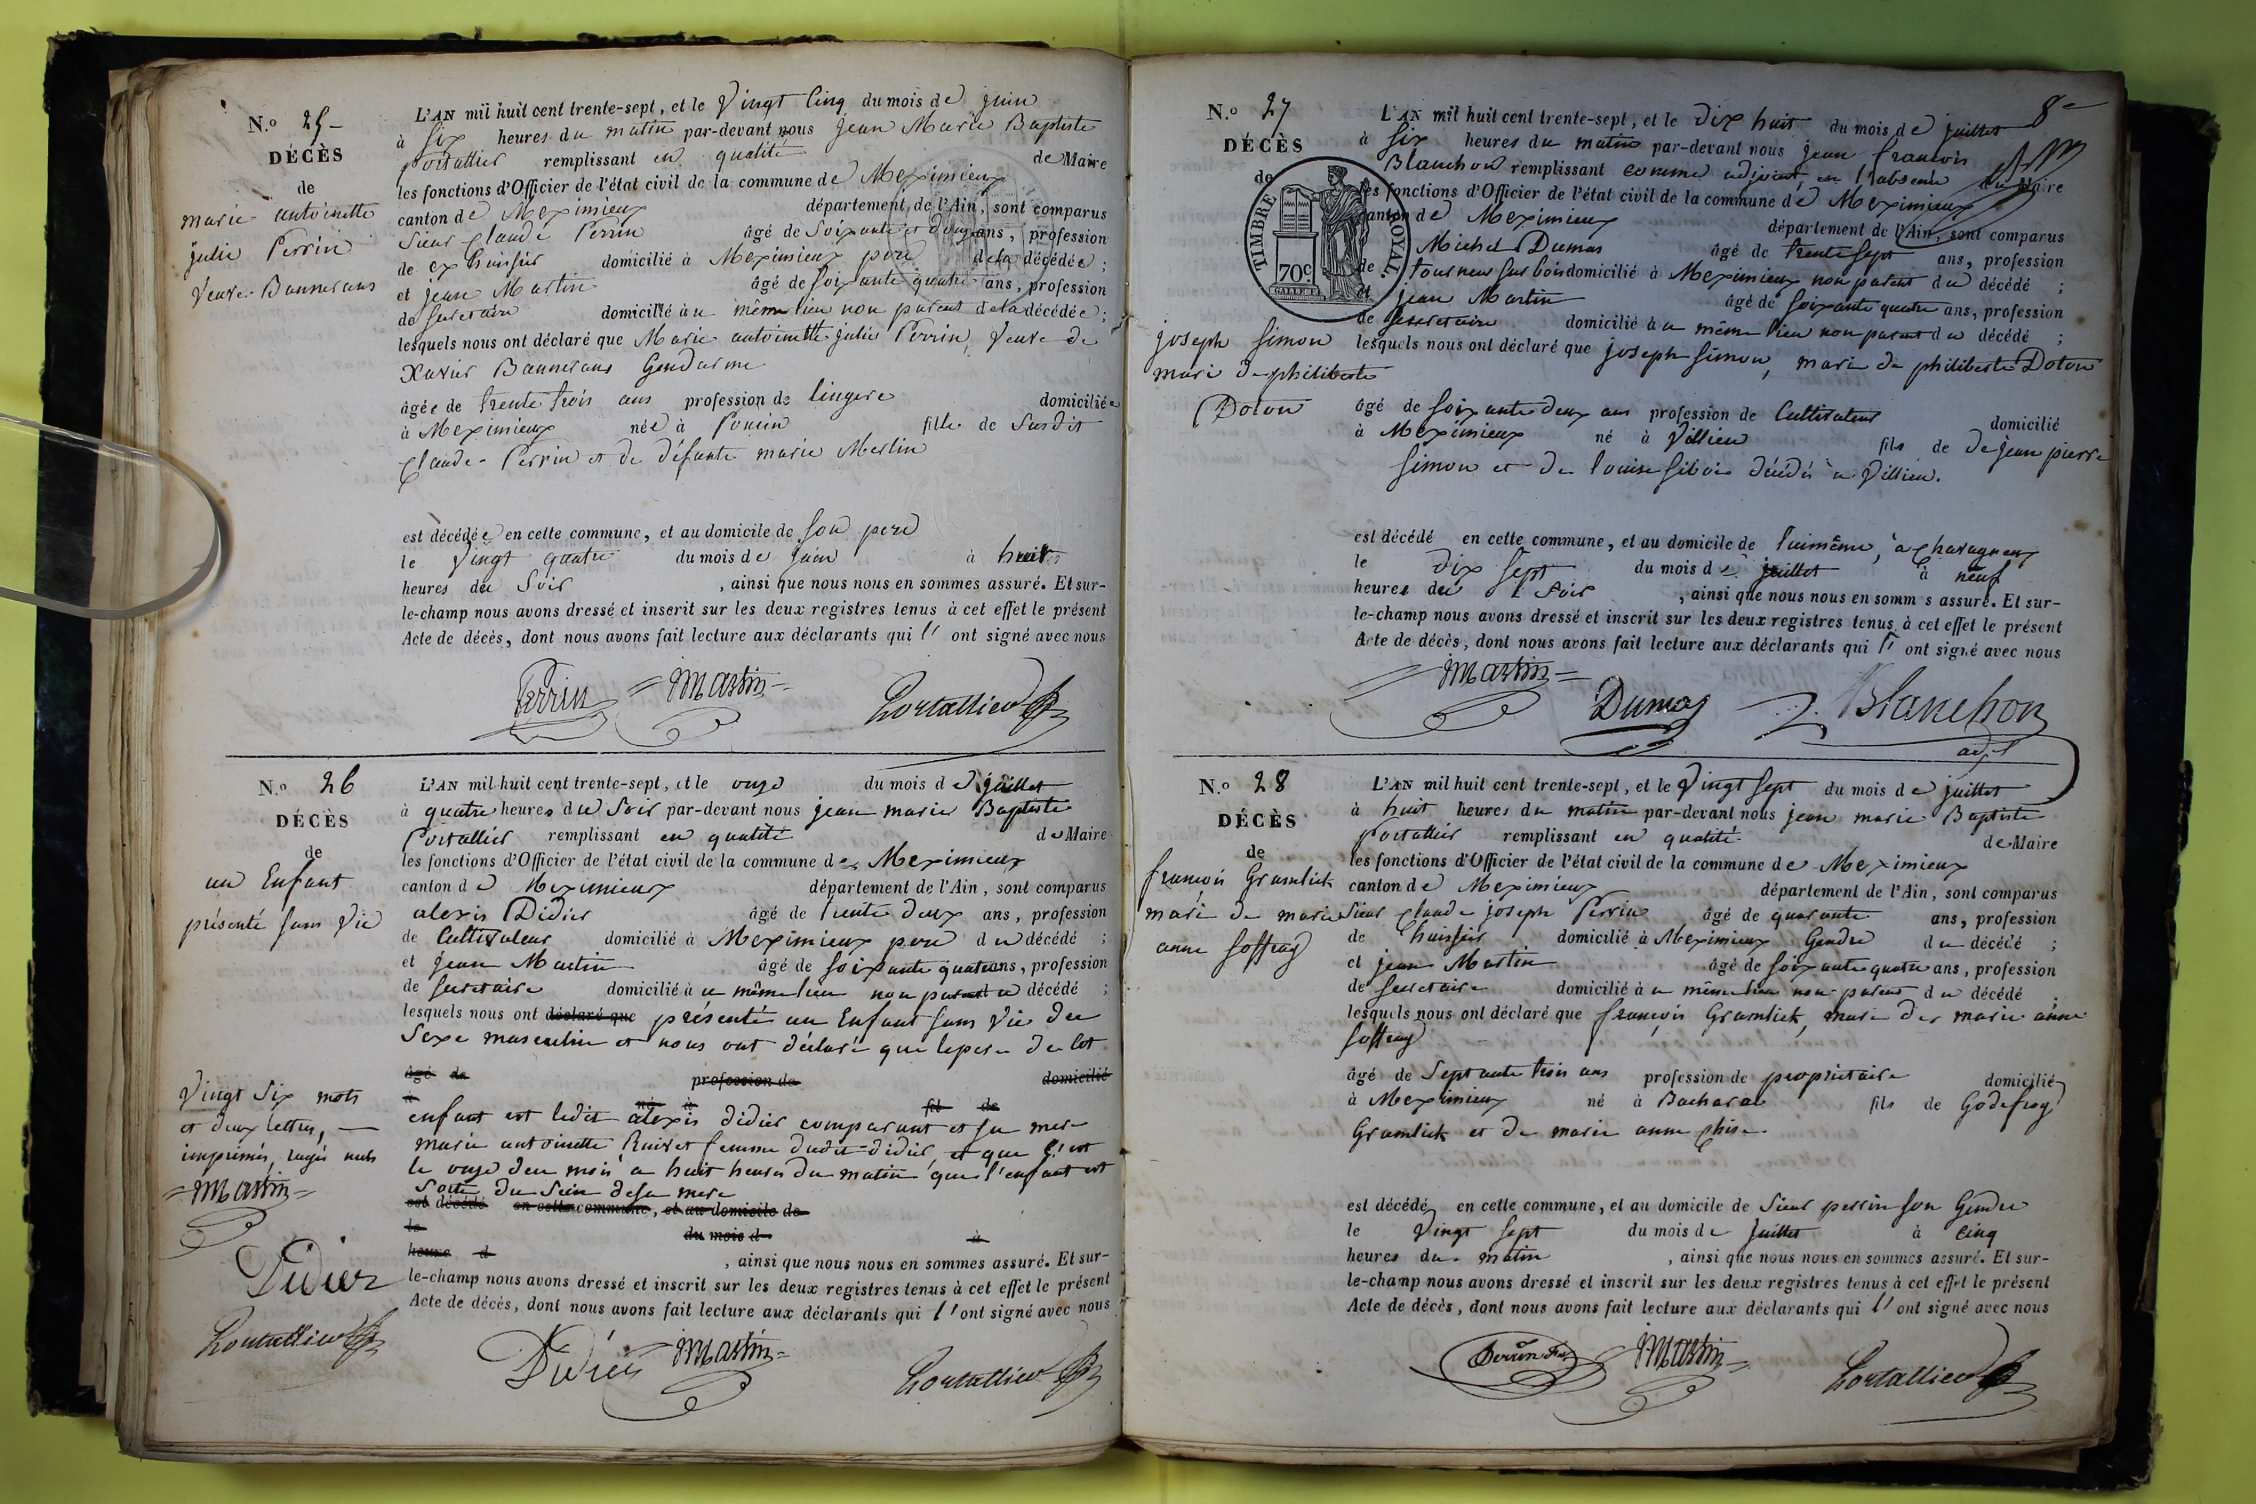 N.o 25
DÉCÈS
de
marie antoinette
julie Perrin
Veuve Bannerans
L'AN mil huit cent trente-sept, et le Vingt Cinq du mois de juin
à Six heures du matin par-devant nous Jean Marie Baptiste
portallier remplissant en qualité de Maire
les fonctions d'Officier de l'état civil de la commune de Meximieux
canton de Meximieux département de l'Ain, sont comparus
Sieur Claude Perrin âgé de Soixante et ans, profession
de ex huissier domicilié à Meximieux pere de la décédée ;
et jean Martin âgé de Soixante quatre ans, profession
de Secretaire domicilié à u même lieu non parent de la décédée ;
lesquels nous ont déclaré que Marie antoinette julie Perrin, Veuve de
Xavier Bannerans Gendarme
âgée de trente trois ans profession de lingere domiciliée
à Meximieux née à Poncin fille de Susdit
Claude Perrin et de défunte marie Merlin
est décédée en cette commune, et au domicile de Son pere
le Vingt quatre du mois de juin à huit
heures du Soir , ainsi que nous nous en sommes assuré. Et sur-
le-champ nous avons dressé et inscrit sur les deux registres tenus à cet effet le présent
Acte de décès, dont nous avons fait lecture aux déclarants qui l' ont signé avec nous
Perrin Martin Portallier
N.o 26
DÉCÈS
de
un Enfant
présenté Sans Vie
L'AN mil huit cent trente-sept, et le onze du mois de juillet
à quatre heures du Soir par-devant nous jean marie Baptiste
Portallier remplissant en qualité de Maire
les fonctions d'Officier de l'état civil de la commune de Meximieux
canton de Meximieux département de l'Ain, sont comparus
alexis Didier âgé de trente deux ans, profession
de Cultivateur domicilié à Meximieux pere du décédé ;
et jean Martin âgé de Soixante quatre ans, profession
de Secretaire domicilié à u même lieu non parent du décédé ;
lesquels nous ont déclaré que présenté un Enfant Sans Vie du
Sexe masculin et nous ont déclaré que le pere de Cet
âgé de profession de domicilié
à né à fil de
enfant est ledit alexis didier comparant et sa mere
marie antoinette femme dudit didier, et que C'est
le onze du mois a huit heures du matin que l'enfant est
Sorti du Sein de sa mere
est décédé en cette commune, et au domicile de
le du mois d à
heure d , ainsi que nous nous en sommes assuré. Et sur-
le-champ nous avons dressé et inscrit sur les deux registres tenus à cet effet le présent
Acte de décès, dont nous avons fait lecture aux déclarants qui l' ont signé avec nous
Vingt Six mots
et deux lettres,
imprimés, rayés nuls
Martin
Didier
Portallier
Didier Martin Portallier
8e
N.o 27
DÉCÈS
de
TIMBRE ROYAL.
70c
joseph Simon
mari de philiberte
Doton
L'AN mil huit cent trente-sept, et le Dix huit du mois de juillet
à Six heures du matin par-devant nous jean francois
Blanchon remplissant comme adjoint, en l'absence du Maire
les fonctions d'Officier de l'état civil de la commune de Meximieux
canton de Meximieux département de l'Ain, sont comparus
Michel Dumas âgé de trente Sept ans, profession
de tourneur sur bois domicilié à Meximieux non parent du décédé ;
et jean Martin âgé de Soixante quatre ans, profession
de Secretaire domicilié à u même lieu non parent du décédé ;
lesquels nous ont déclaré que joseph Simon, mari de philiberte Doton
âgé de Soixante deux ans profession de Cultivateur domicilié
à Meximieux né à Villieu fils de de jean pierre
Simon et de louise décédés à Villieu.
est décédé en cette commune, et au domicile de lui même, à Charagneux
le dix Sept du mois de juillet à neuf
heures du Soir , ainsi que nous nous en somm s assuré. Et sur-
le-champ nous avons dressé et inscrit sur les deux registres tenus à cet effet le présent
Acte de décès, dont nous avons fait lecture aux déclarants qui l' ont signé avec nous
Martin Dumas Blanchon
adjt
N.o 28
DÉCÈS
de
françois Gramlick
mari de marie
anne Soffray
L'AN mil huit cent trente-sept, et le Vingt Sept du mois de juillet
à huit heures du matin par-devant nous jean marie Baptiste
Portallier remplissant en qualité de Maire
les fonctions d'Officier de l'état civil de la commune de Meximieux
canton de Meximieux département de l'Ain, sont comparus
Sieur Claude joseph Perrin âgé de quarante ans, profession
de huissier domicilié à Meximieux Gendre du décédé ;
et jean Martin âgé de Soixante quatre ans, profession
de Secretaire domicilié à u même lieu non parent du décédé ;
lesquels nous ont déclaré que françois Gramlick, mari de marie anne
Soffray
âgé de Septante trois ans profession de propriétaire domicilié
à Meximieux né à Bacharac fils de Godefroy
Gramlick et de marie anne
est décédé en cette commune, et au domicile de Sieur perrin son Gendre
le Vingt Sept du mois de Juillet à Cinq
heures du matin , ainsi que nous nous en sommes assuré. Et sur-
le-champ nous avons dressé et inscrit sur les deux registres tenus à cet effet le présent
Acte de décès, dont nous avons fait lecture aux déclarants qui l' ont signé avec nous
Perrin Martin Portallier